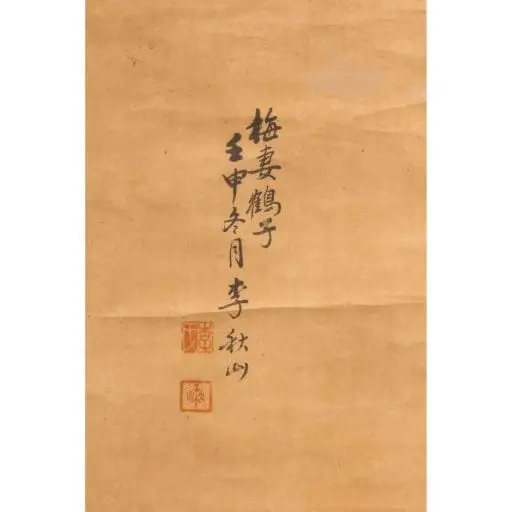 梅妻鶴子
壬申冬月李秋山